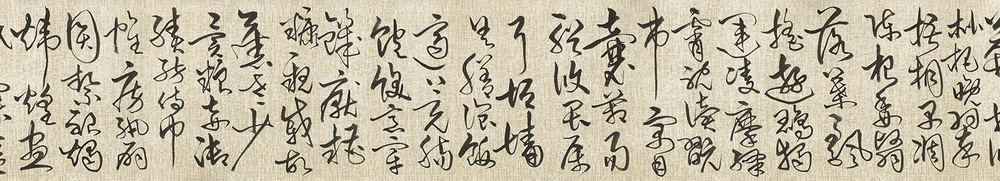 枇杷晚翠
梧桐早凋
陳根委翳
落葉飄
颻遊鵾獨
運凌摩絳
霄耽讀翫
市寓目
囊箱易
輶攸畏屬
耳垣牆
具膳飧飯
適口充腸
飽飫烹宰
飢厭糟
糠親戚故
舊老少
異糧妾御
績紡侍巾
帷房紈扇
圓潔銀燭
煒煌晝